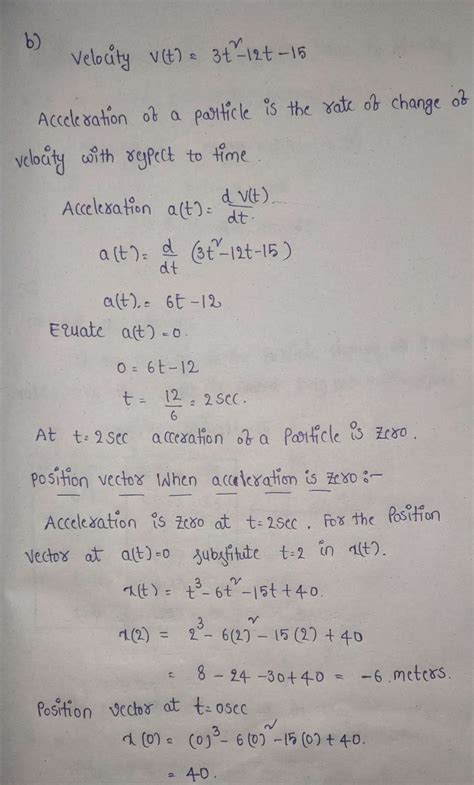 b)
Velocity v(t) = 3t²-12t-15
Acceleration of a particle is the rate of change of
velocity with respect to time.
Acceleration a(t) = d v(t)/dt.
a(t) = d/dt (3t²-12t-15)
a(t) = 6t-12
Equate a(t) = 0.
0 = 6t-12
t = 12/6 = 2 sec.
At t=2 sec acceration of a Particle is zero.
Position vector When acceleration is zero :-
Acceleration is zero at t=2sec. For the Position
vector at a(t)=0 substitute t=2 in x(t).
x(t) = t³-6t²-15t+40.
x(2) = 2³-6(2)²-15(2)+40
= 8-24-30+40 = -6 meters.
Position vector at t=0sec
x(0) = (0)³-6(0)²-15(0)+40.
= 40.